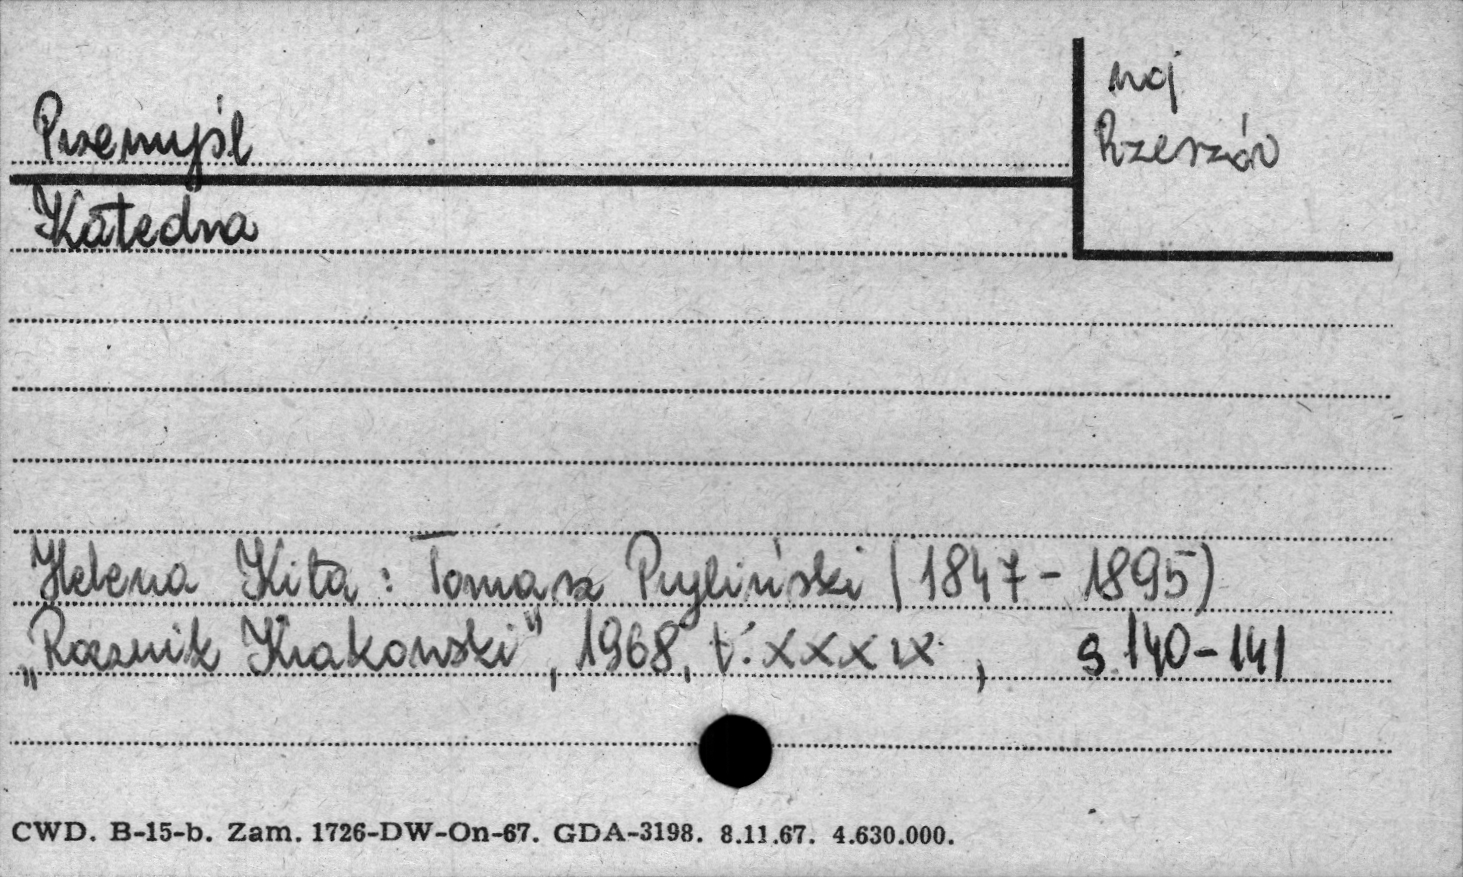 Przemyśl
woj
Rzeszów
Katedra
Helena Kita: Tomasz Pryliński (1847-1895)
„Rocznik Krakowski", 1968, t. XXXIX, s. 140-141
CWD. B-15-b. Zam. 1726-DW-On-67. GDA-3198. 8.11.67. 4.630.000.